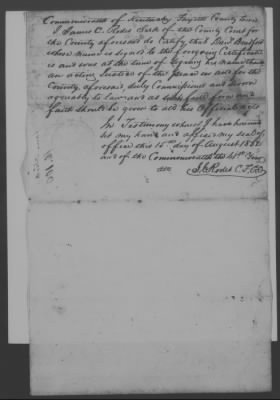 Commonwealth of Kentucky Fayette County
I James C. Rodes Clerk of the County Court for
the County aforesaid do Certify that
whose name is signed to the foregoing Certificate
is and was at the time of signing his name thereto
an acting Justice of the Peace in and for the
County aforesaid, duly Commissioned and sworn
agreeably to law and as such full faith and
faith should be given to all his Official acts
In Testimony whereof I have hereunto
set my hand and affixed my seal of
office this 15th day of August
and of the Commonwealth the 41st Year
J C Rodes C.